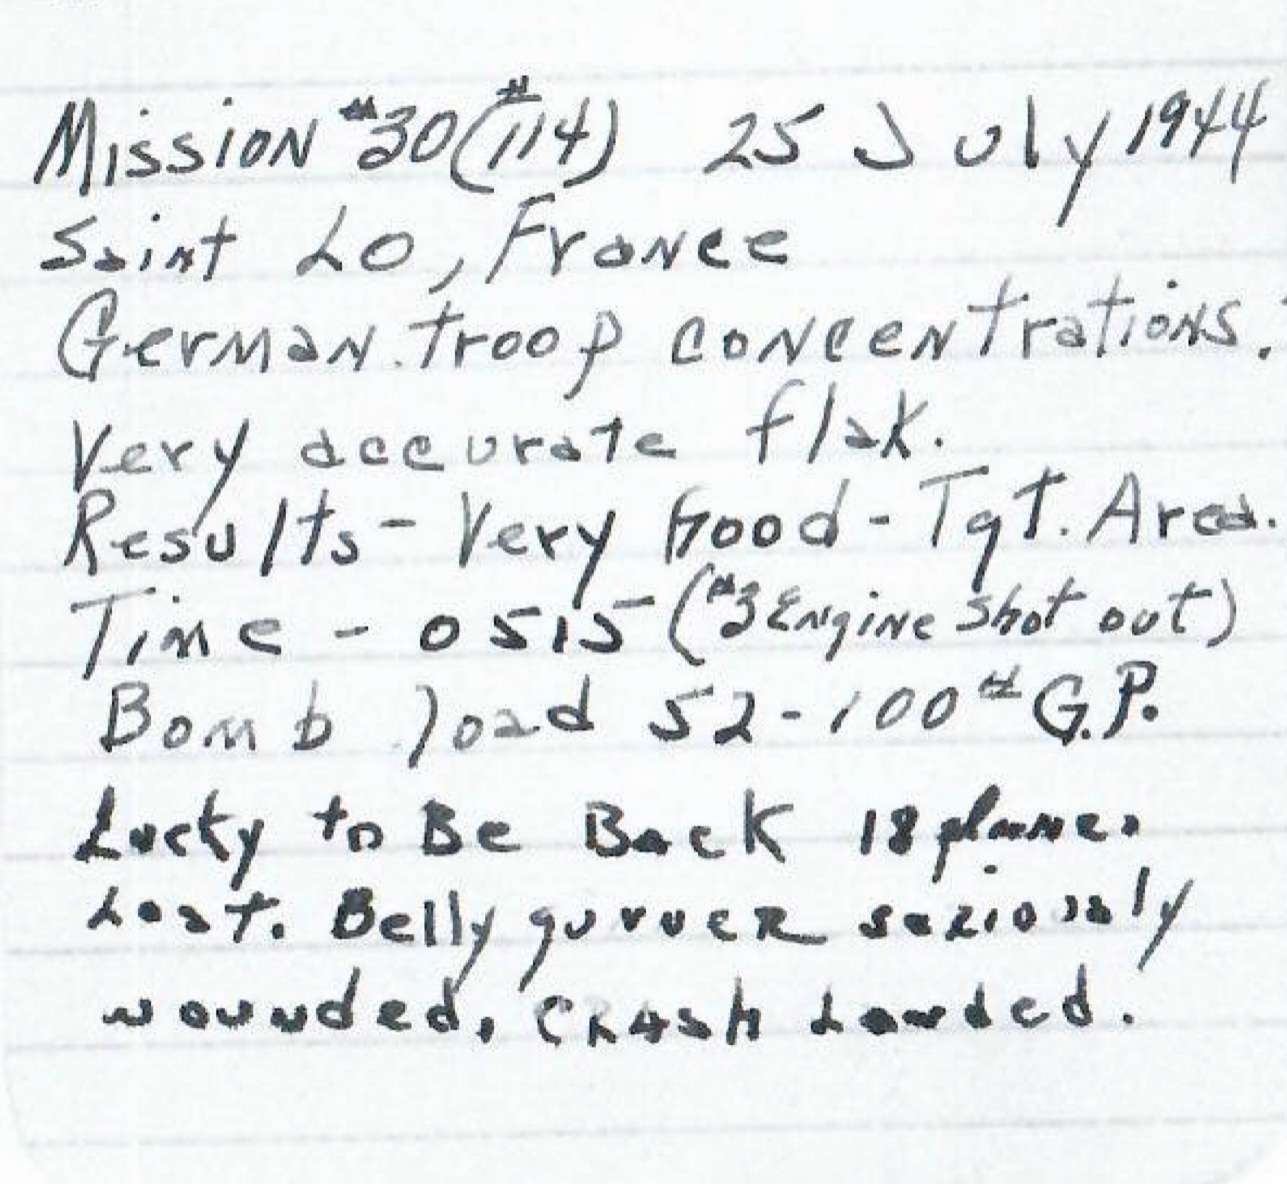 Mission #30 (#114) 25 July 1944
Saint Lo, France
German troop concentrations.
Very accurate flak.
Results - Very Good - Tgt. Area.
Time - 0515 (#3 Engine shot out)
Bomb load 52-100# G.P.
Lucky to Be Back 18 planes
Lost. Belly gunner seriously
wounded, Crash Landed.